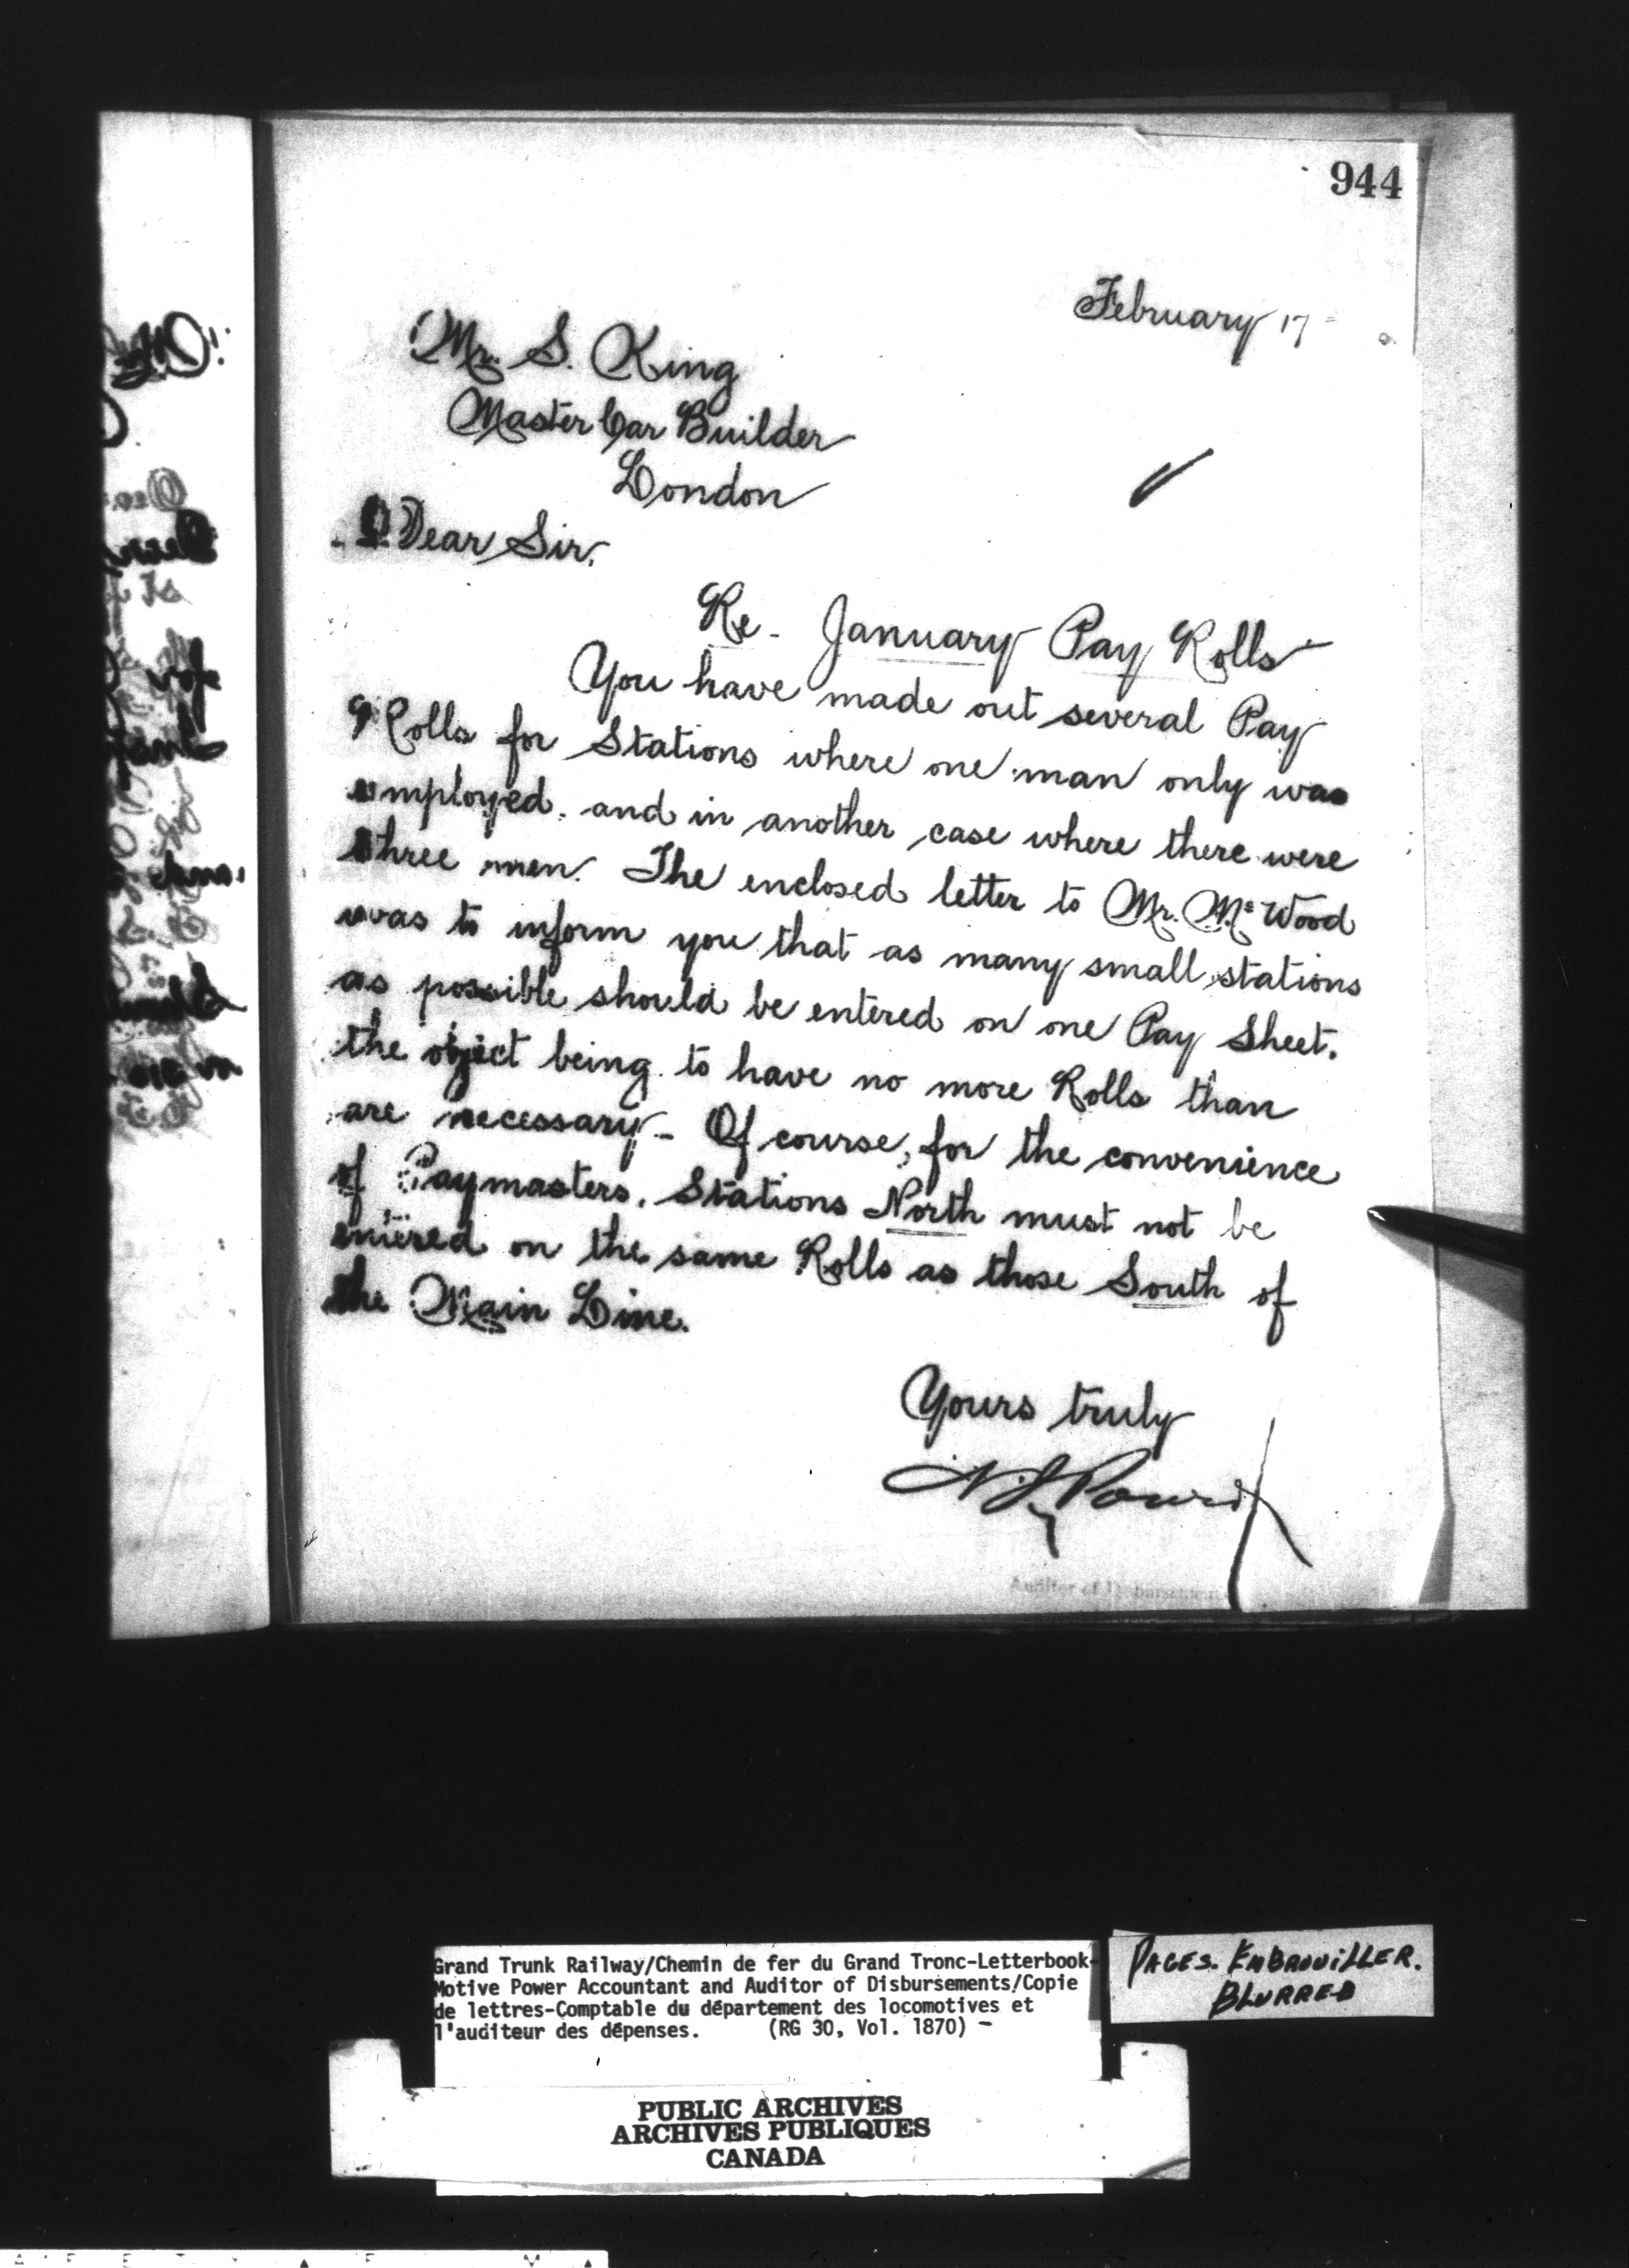 944
February 17
Mr. S. King
Master Car Builder
London
Dear Sir,
Re. January Pay Rolls
You have made out several Pay
Rolls for Stations where one man only was
employed, and in another case where there were
three men. The enclosed letter to Mr. Mc Wood
was to inform you that as many small stations
as possible should be entered on one Pay Sheet.
the object being to have no more Rolls than
are necessary - Of course, for the convenience
of Paymasters, Stations North must not be
entered on the same Rolls as those South of
the Main Line.
Yours truly
Auditor of Disbursements
Grand Trunk Railway/Chemin de fer du Grand Tronc-Letterbook-
Motive Power Accountant and Auditor of Disbursements/Copie
de lettres-Comptable du département des locomotives et
l'auditeur des dépenses. (RG 30, Vol. 1870) -
PAGES. EMBROUILLER.
BLURRED
PUBLIC ARCHIVES
ARCHIVES PUBLIQUES
CANADA